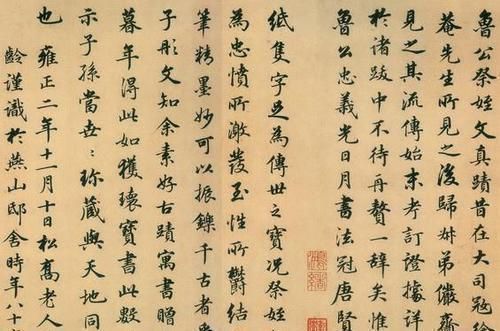 魯公祭姪文真蹟昔在大司寇徐
菴先生所見之後歸弟儼齋
見之其流傳始末考訂證據詳
於諸跋中不待再贅一辭矣惟
魯公忠義光日月書法冠唐賢
紙隻字足為傳世之寶況祭姪
為忠憤所激發至性所鬱結
筆精墨妙可以振鑠千古者
子彤文知余素好古蹟寓書贈
暮年得此如獲瓌寶書此數
示子孫當世〻珍藏與天地同
也雍正二年十一月十日松喬老人
齡謹識於燕山邸舍時年八十